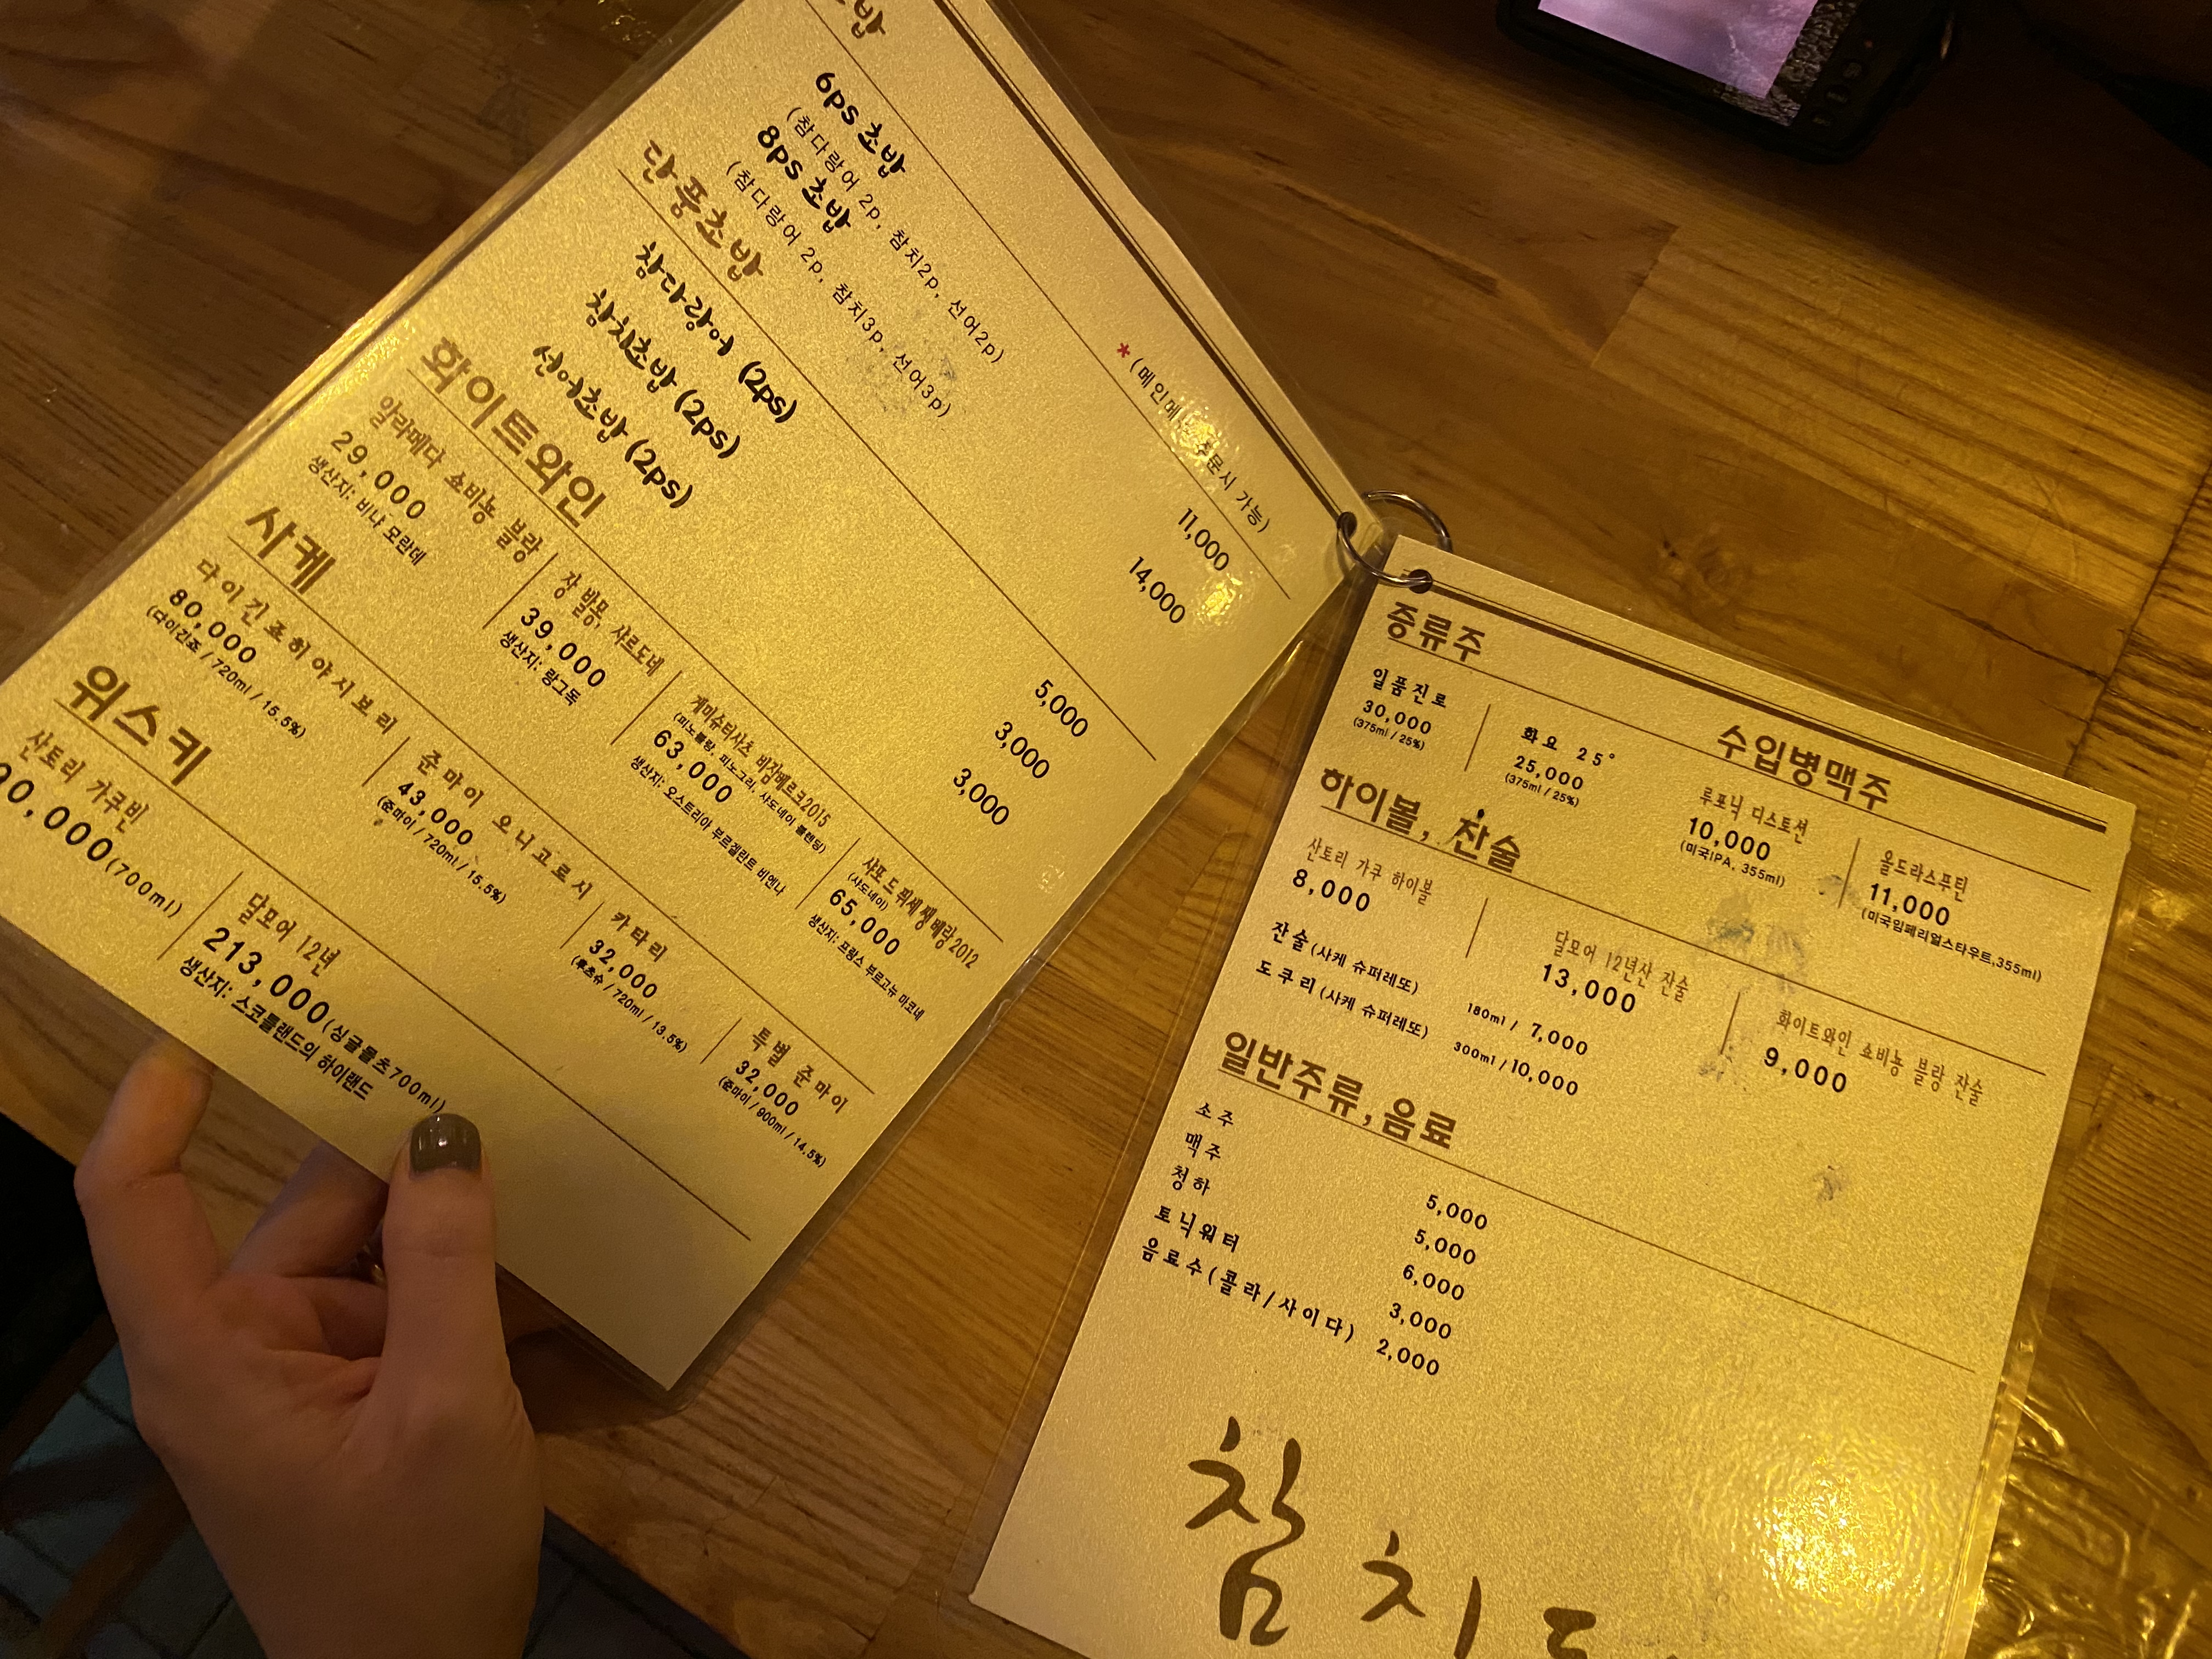 초밥
*(메인메뉴 주문시 가능)
6ps 초밥 11,000
(참다랑어 2p, 참치2p, 선어2p)
8ps 초밥 14,000
(참다랑어 2p, 참치3p, 선어3p)
단품초밥
참다랑어 (2ps) 5,000
참치초밥 (2ps) 3,000
선어초밥 (2ps) 3,000
화이트와인
알라메다 쇼비뇽 블랑
29,000
생산지: 비냐 모란데
장 발몽, 샤르도네
39,000
생산지: 랑그독
게미슈터사츠 비잠베르크2015
(피노블랑, 피노그리, 샤도네이 블렌딩)
63,000
생산지: 오스트리아 부르겐란트 비엔나
샤포드 뀌세쌩베랑2012
(샤도네이)
65,000
생산지: 프랑스 부르고뉴 마코네
사케
다이긴죠허야시보리
80,000
(다이긴죠 / 720ml / 15.5%)
준마이 오니고로시
43,000
(준마이 / 720ml / 15.5%)
카타리
32,000
720ml / 13.5%)
특별 준마이
32,000
(준마이 / 900ml / 14.5%)
위스키
산토리 가쿠빈
(700ml)
달모어 12년
213,000(싱글몰츠700ml)
생산지: 스코틀랜드의 하이랜드
증류주
일품진로
30,000
(375ml / 25%)
화요 25°
25,000
(375ml / 25%)
수입병맥주
루포닉 디스토션
10,000
(미국IPA, 355ml)
올드라스푸틴
11,000
(미국임페리얼스타우트,355ml)
하이볼, 잔술
산토리 가쿠 하이볼
8,000
달모어 12년산 잔술
13,000
화이트와인 쇼비뇽 블랑 잔술
9,000
잔술(사케 슈퍼레또) 180ml / 7,000
도쿠리(사케 슈퍼레또) 300ml / 10,000
일반주류,음료
소주 5,000
맥주 5,000
청하 6,000
토닉워터 3,000
음료수(콜라/사이다) 2,000
참치